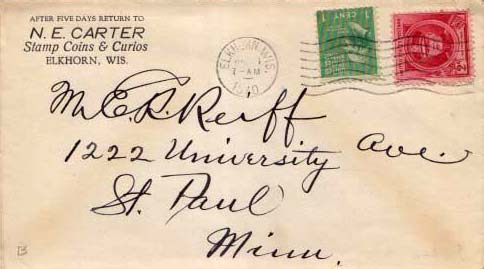 AFTER FIVE DAYS RETURN TO
N. E. CARTER
Stamp Coins & Curios
ELKHORN, WIS.
ELKHORN, WIS.
7-AM
1940
1 CENT 1
M. E. R. Kerff
1222 University Ave.
St. Paul
Minn.